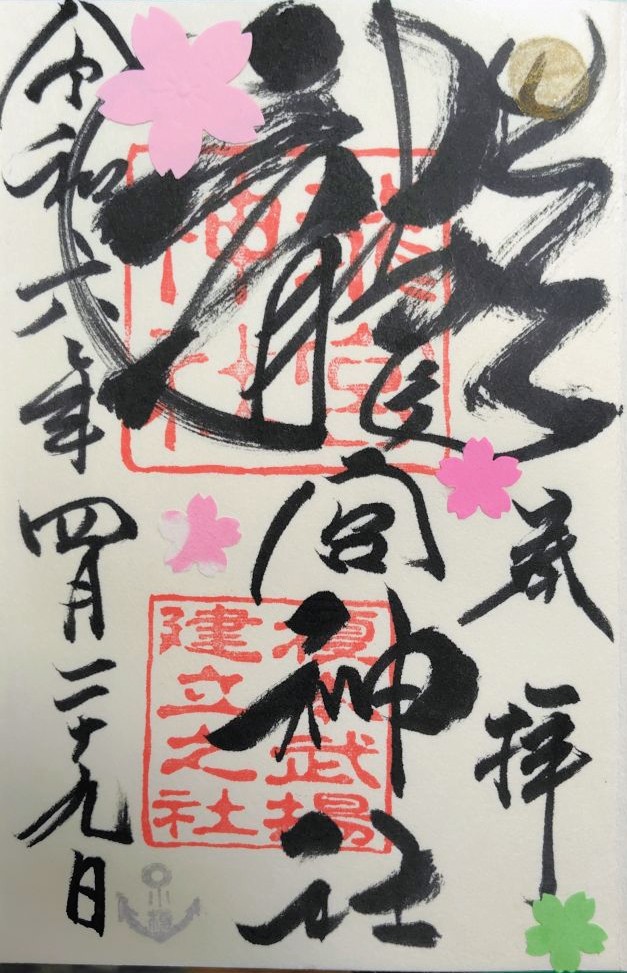 奉拝
龍宮神社
龍宮
神社
榎本武揚
建立之社
令和六年四月二十九日